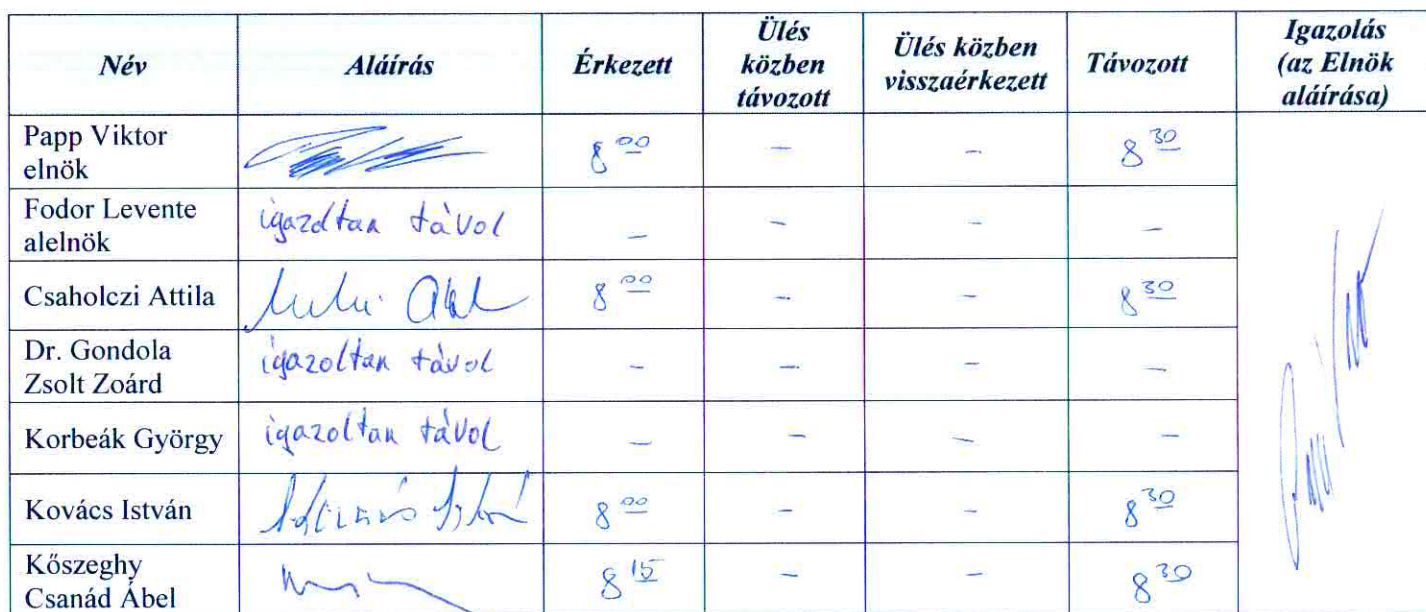 Név Aláírás Érkezett Ülés közben távozott Ülés közben visszaérkezett Távozott Igazolás (az Elnök aláírása)
Papp Viktor elnök 8 00 – – 8 30
Fodor Levente alelnök igazoltan távol – – – –
Csaholczi Attila 8 00 – – 8 30
Dr. Gondola Zsolt Zoárd igazoltan távol – – – –
Korbeák György igazoltan távol – – – –
Kovács István 8 00 – – 8 30
Kőszeghy Csanád Ábel 8 15 – – 8 30